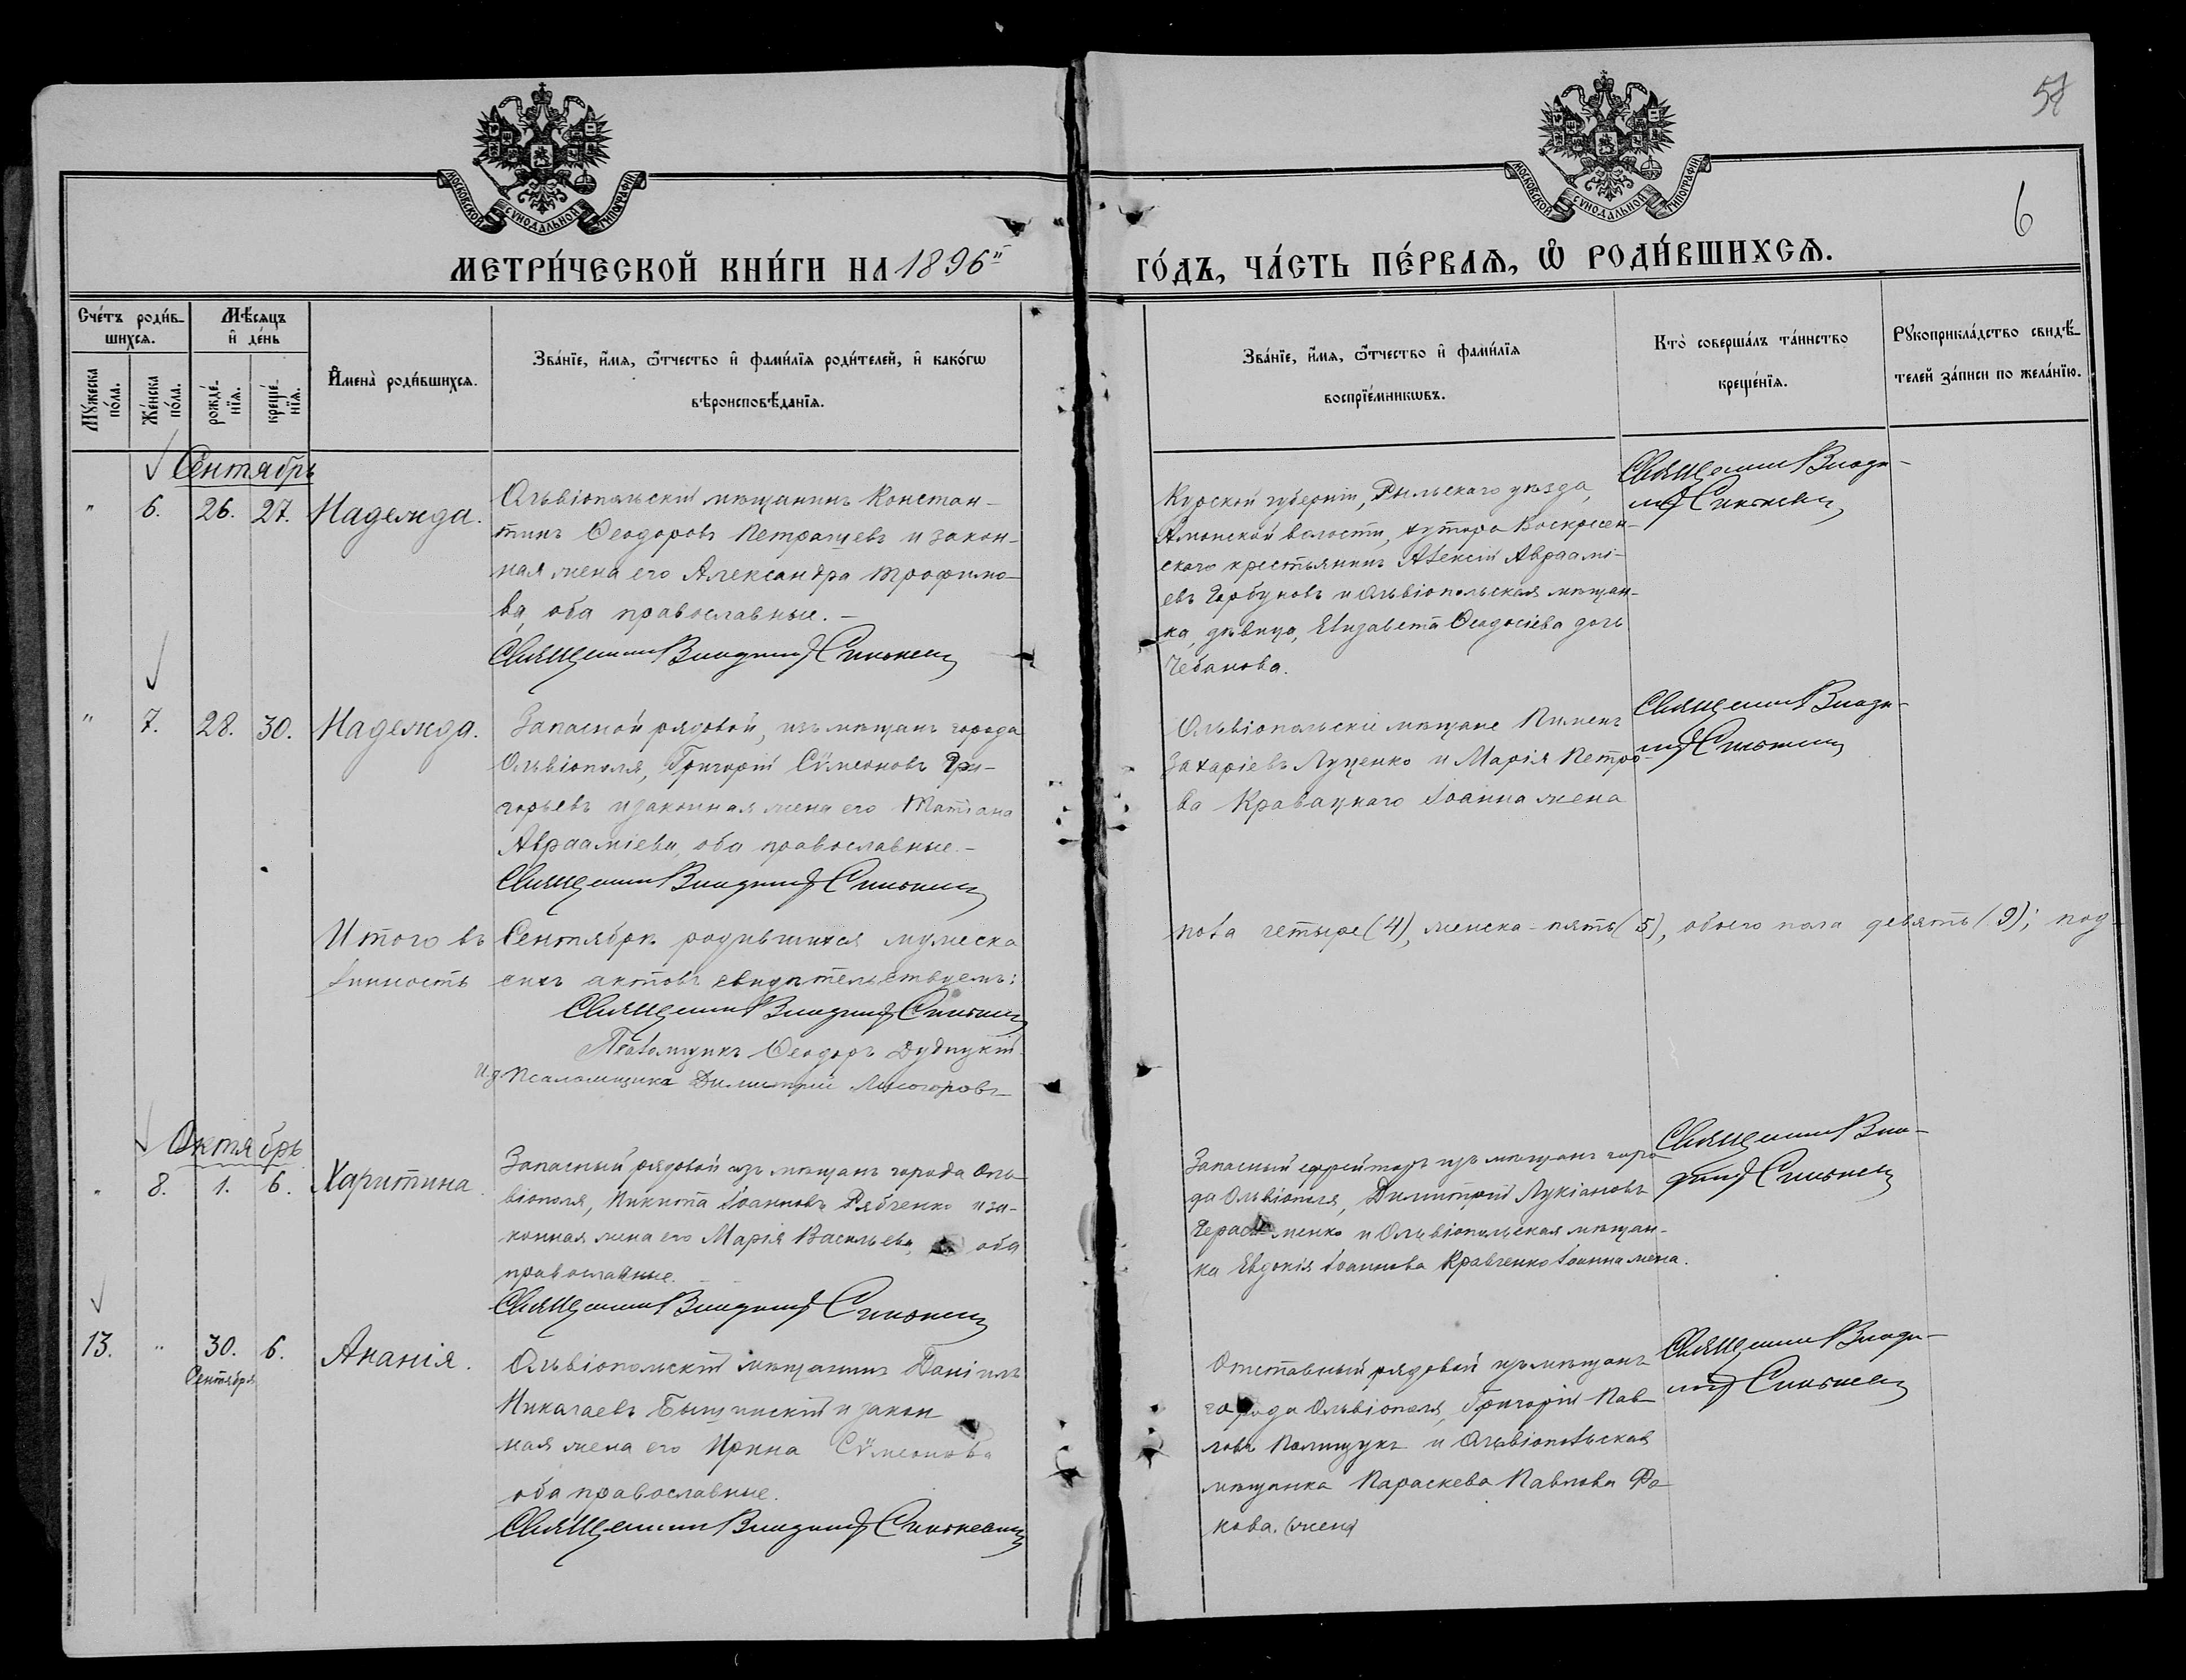 58
6
МОСКОВСКОЙ СѴНОДАЛЬНОЙ ТИПОГРАФІИ
МОСКОВСКОЙ СѴНОДАЛЬНОЙ ТИПОГРАФІИ
МЕТРИ́ЧЕСКОЙ КНИ́ГИ НА 1896й ГО́ДЪ, ЧА́СТЬ ПЕ́РВАѦ, Ѽ РОДИ́ВШИХСѦ.
Сче́тъ роди́в-
шихсѧ.
Мѣ́сѧцъ
и҆ де́нь
Мꙋ́жеска
по́ла.
Же́нска
по́ла.
рожде́-
нїѧ.
креще́-
нїѧ.
И҆мена̀ роди́вшихсѧ.
Зва́нїе, и҆́мѧ, ѻ҆́тчество и҆ фами́лїѧ роди́телей, и҆ како́гѡ
вѣроисповѣ́данїѧ.
Зва́нїе, и҆́мѧ, ѻ҆́тчество и҆ фами́лїѧ
воспрїе́мникѡвъ.
Кто̀ соверша́лъ та́инство
креще́нїѧ.
Рꙋкоприкла́дство свидѣ́-
телей за́писи по жела́нїю.
Сентябрь
" 6. 26. 27. Надежда.
Ольвіопольскій мѣщанинъ Констан-
тинъ Ѳеодоровъ Петрашевъ и закон-
ная жена его Александра Трофимо-
ва, оба православные. -
Священникъ Владимір Синькевич
Курской губерніи, Рыльскаго уѣзда,
Амонской волости, хутора Воскресен-
скаго крестьянинъ Алексій Авраамі-
евъ Горбуновъ и Ольвіопольская мѣщан-
ка, дѣвица, Елизавета Ѳеодосіева дочь
Чебанова.
Священникъ Влади-
мір Синькевич
" 7. 28. 30. Надежда.
Запасной рядовой, изъ мѣщанъ города
Ольвіополя, Григорій Сѵмеоновъ Гри-
горьевъ и законная жена его Татіана
Авраамiева, оба православные. -
Священникъ Владимір Синькевич
Ольвіопольскіе мѣщане Пименъ
Захаріевъ Луценко и Марія Петро-
ва Кравацкаго Іоанна жена
Священникъ Влади-
мір Синькевич
Итого въ Сентябрѣ родившихся мужеска пола четыре (4), женска - пять (5), обоего пола девять (9); под-
линность сихъ актовъ свидѣтельствуемъ:
Священникъ Владимір Синькевич
Псаломщикъ Ѳеодоръ Дудицкій
И.д. Псаломщика Димитрій Лисогоровъ
Октябрь
" 8. 1. 6. Харитина.
Запасный рядовой изъ мѣщанъ города Оль-
віополя, Никита Іоанновъ Рябченко и за-
конная жена его Марія Васильева, оба
православные. -
Священникъ Владимір Синькевич
Запасный ефрейторъ изъ мѣщанъ горо-
да Ольвіополя, Димитрій Лукіановъ
Герасименко и Ольвіопольская мѣщан-
ка Евдокія Іоаннова Кравченко Іоанна жена.
Священникъ Вла-
димір Синькевич
13. " 30. 6. Ананія.
Сентября
Ольвіопольскій мѣщанинъ Даніилъ
Николаевъ Быщинскій и закон
ная жена его Ирина Сѵмеонова
оба православные.
Священникъ Владимір Синькевич
Отставный рядовой изъ мѣщанъ
города Ольвіополя, Григорій Пав-
ловъ Полищукъ и Ольвіопольская
мѣщанка Параскева Павлова Фо-
кова. (жена)
Священникъ Влади-
мір Синькевич